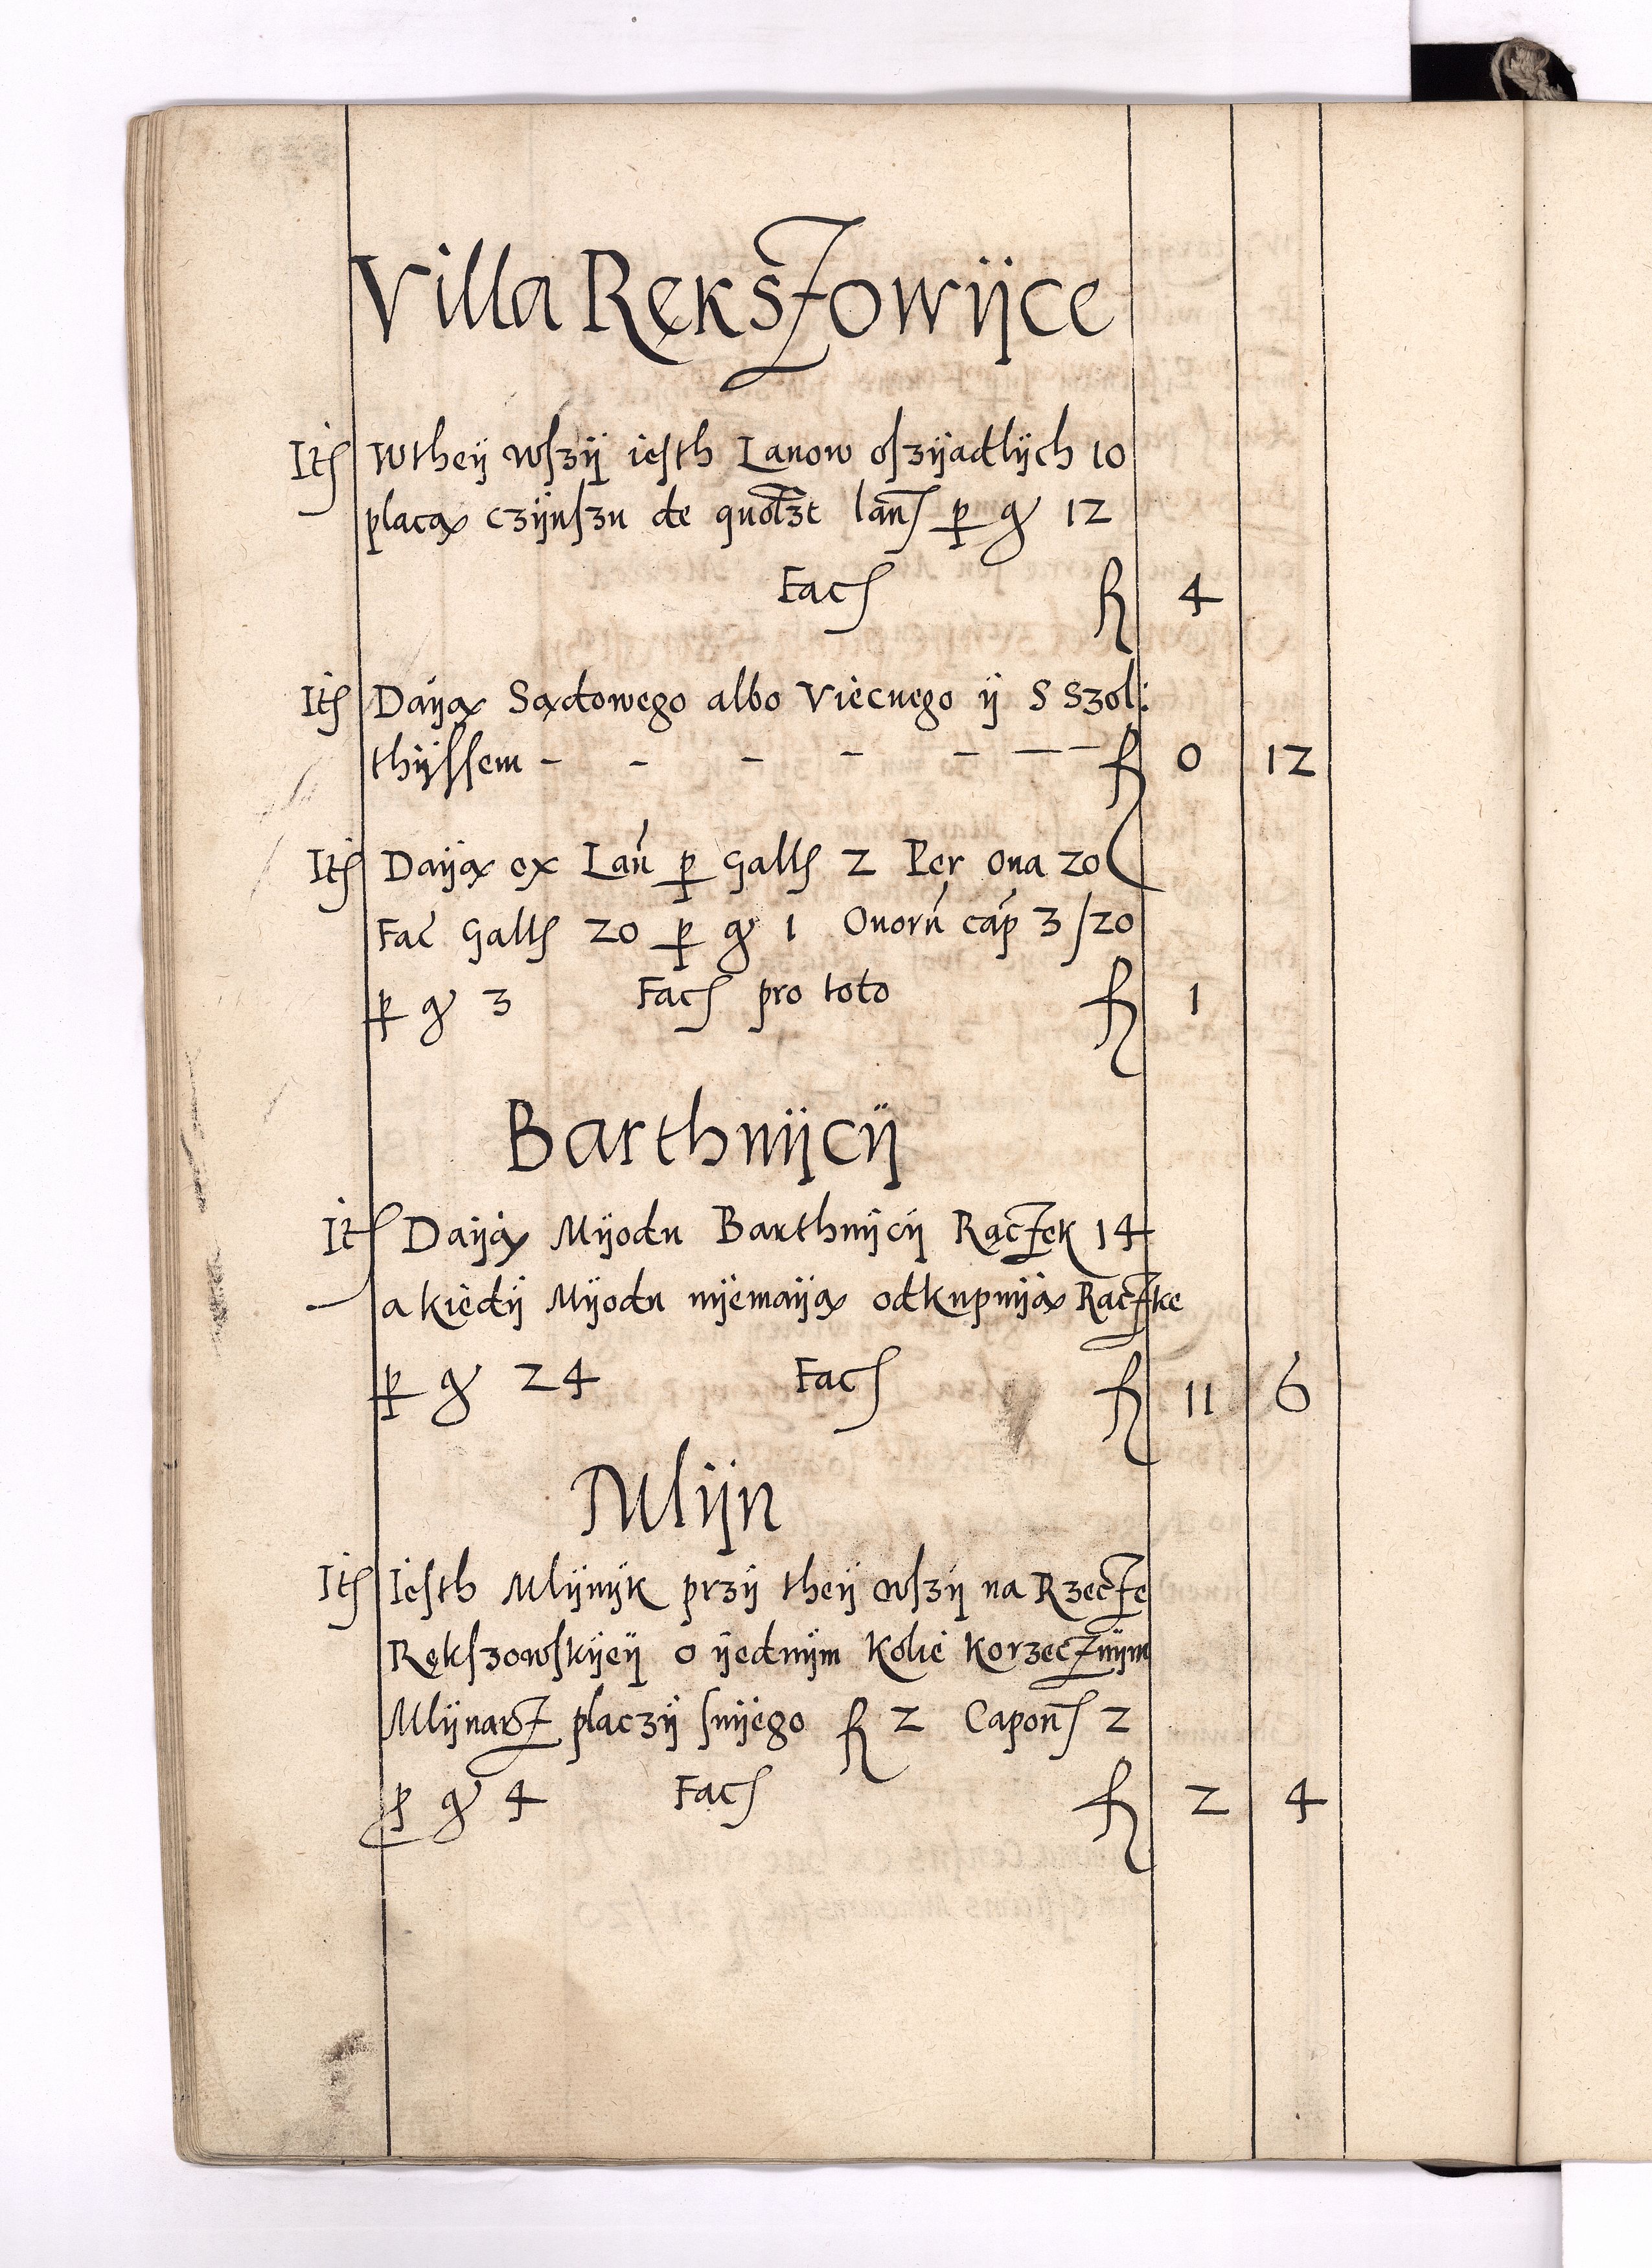 Villa RękSZowijce
Itẜ Wtheij wſzij ieſth Lanow oſzijadlijch 10
placą czijnſzu de quolzt lanẜ p gͬ 12
Facẜ ƒl 4
Itẜ Daiją Sądowego albo Viecnego ij S Szol:
thijſſem - - - - - - - ƒl 0 12
Itẜ Daiją ex Lan p Gallẜ 2 Per Oua 20
Fac Gallẜ 20 p gͬ 1 Ouorũ cap 3/20
p gͬ 3 Facẜ pro toto ƒl 1
Barthnijcij
Itẜ Daiją Mijodu Barthnijcij RącZek 14
a kiedij Mijodu nijemaiją odkupniją RacZke
p gͬ 24 Facẜ ƒl 11 6
Mlijn
Itẜ Ieſth Mlijnijk przij theij wſzij na RzecZe
Rękſzowſkijeij o ijednijm Kolie KorzecZnijm
MlijnarZ placzij ſnijego ƒl 2 Caponẜ 2
p gͬ 4 Facẜ ƒl 2 4